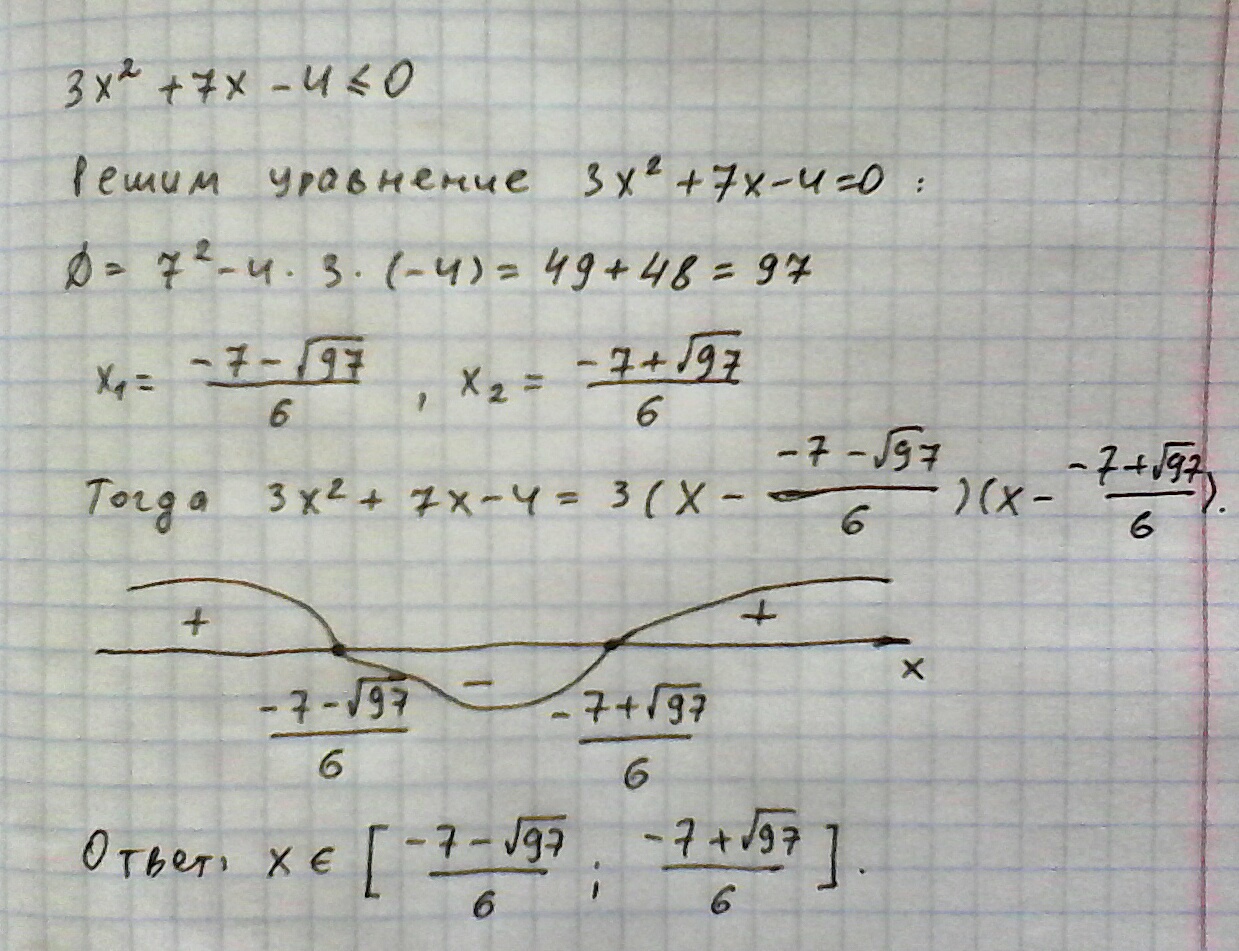 3x² + 7x - 4 ≤ 0
Решим уравнение 3x² + 7x - 4 = 0 :
D = 7² - 4 · 3 · (-4) = 49 + 48 = 97
x₁ = (-7 - √97)/6 , x₂ = (-7 + √97)/6
Тогда 3x² + 7x - 4 = 3(x - (-7 - √97)/6)(x - (-7 + √97)/6).
+ - + x
(-7 - √97)/6 (-7 + √97)/6
Ответ: x ∈ [(-7 - √97)/6 ; (-7 + √97)/6].